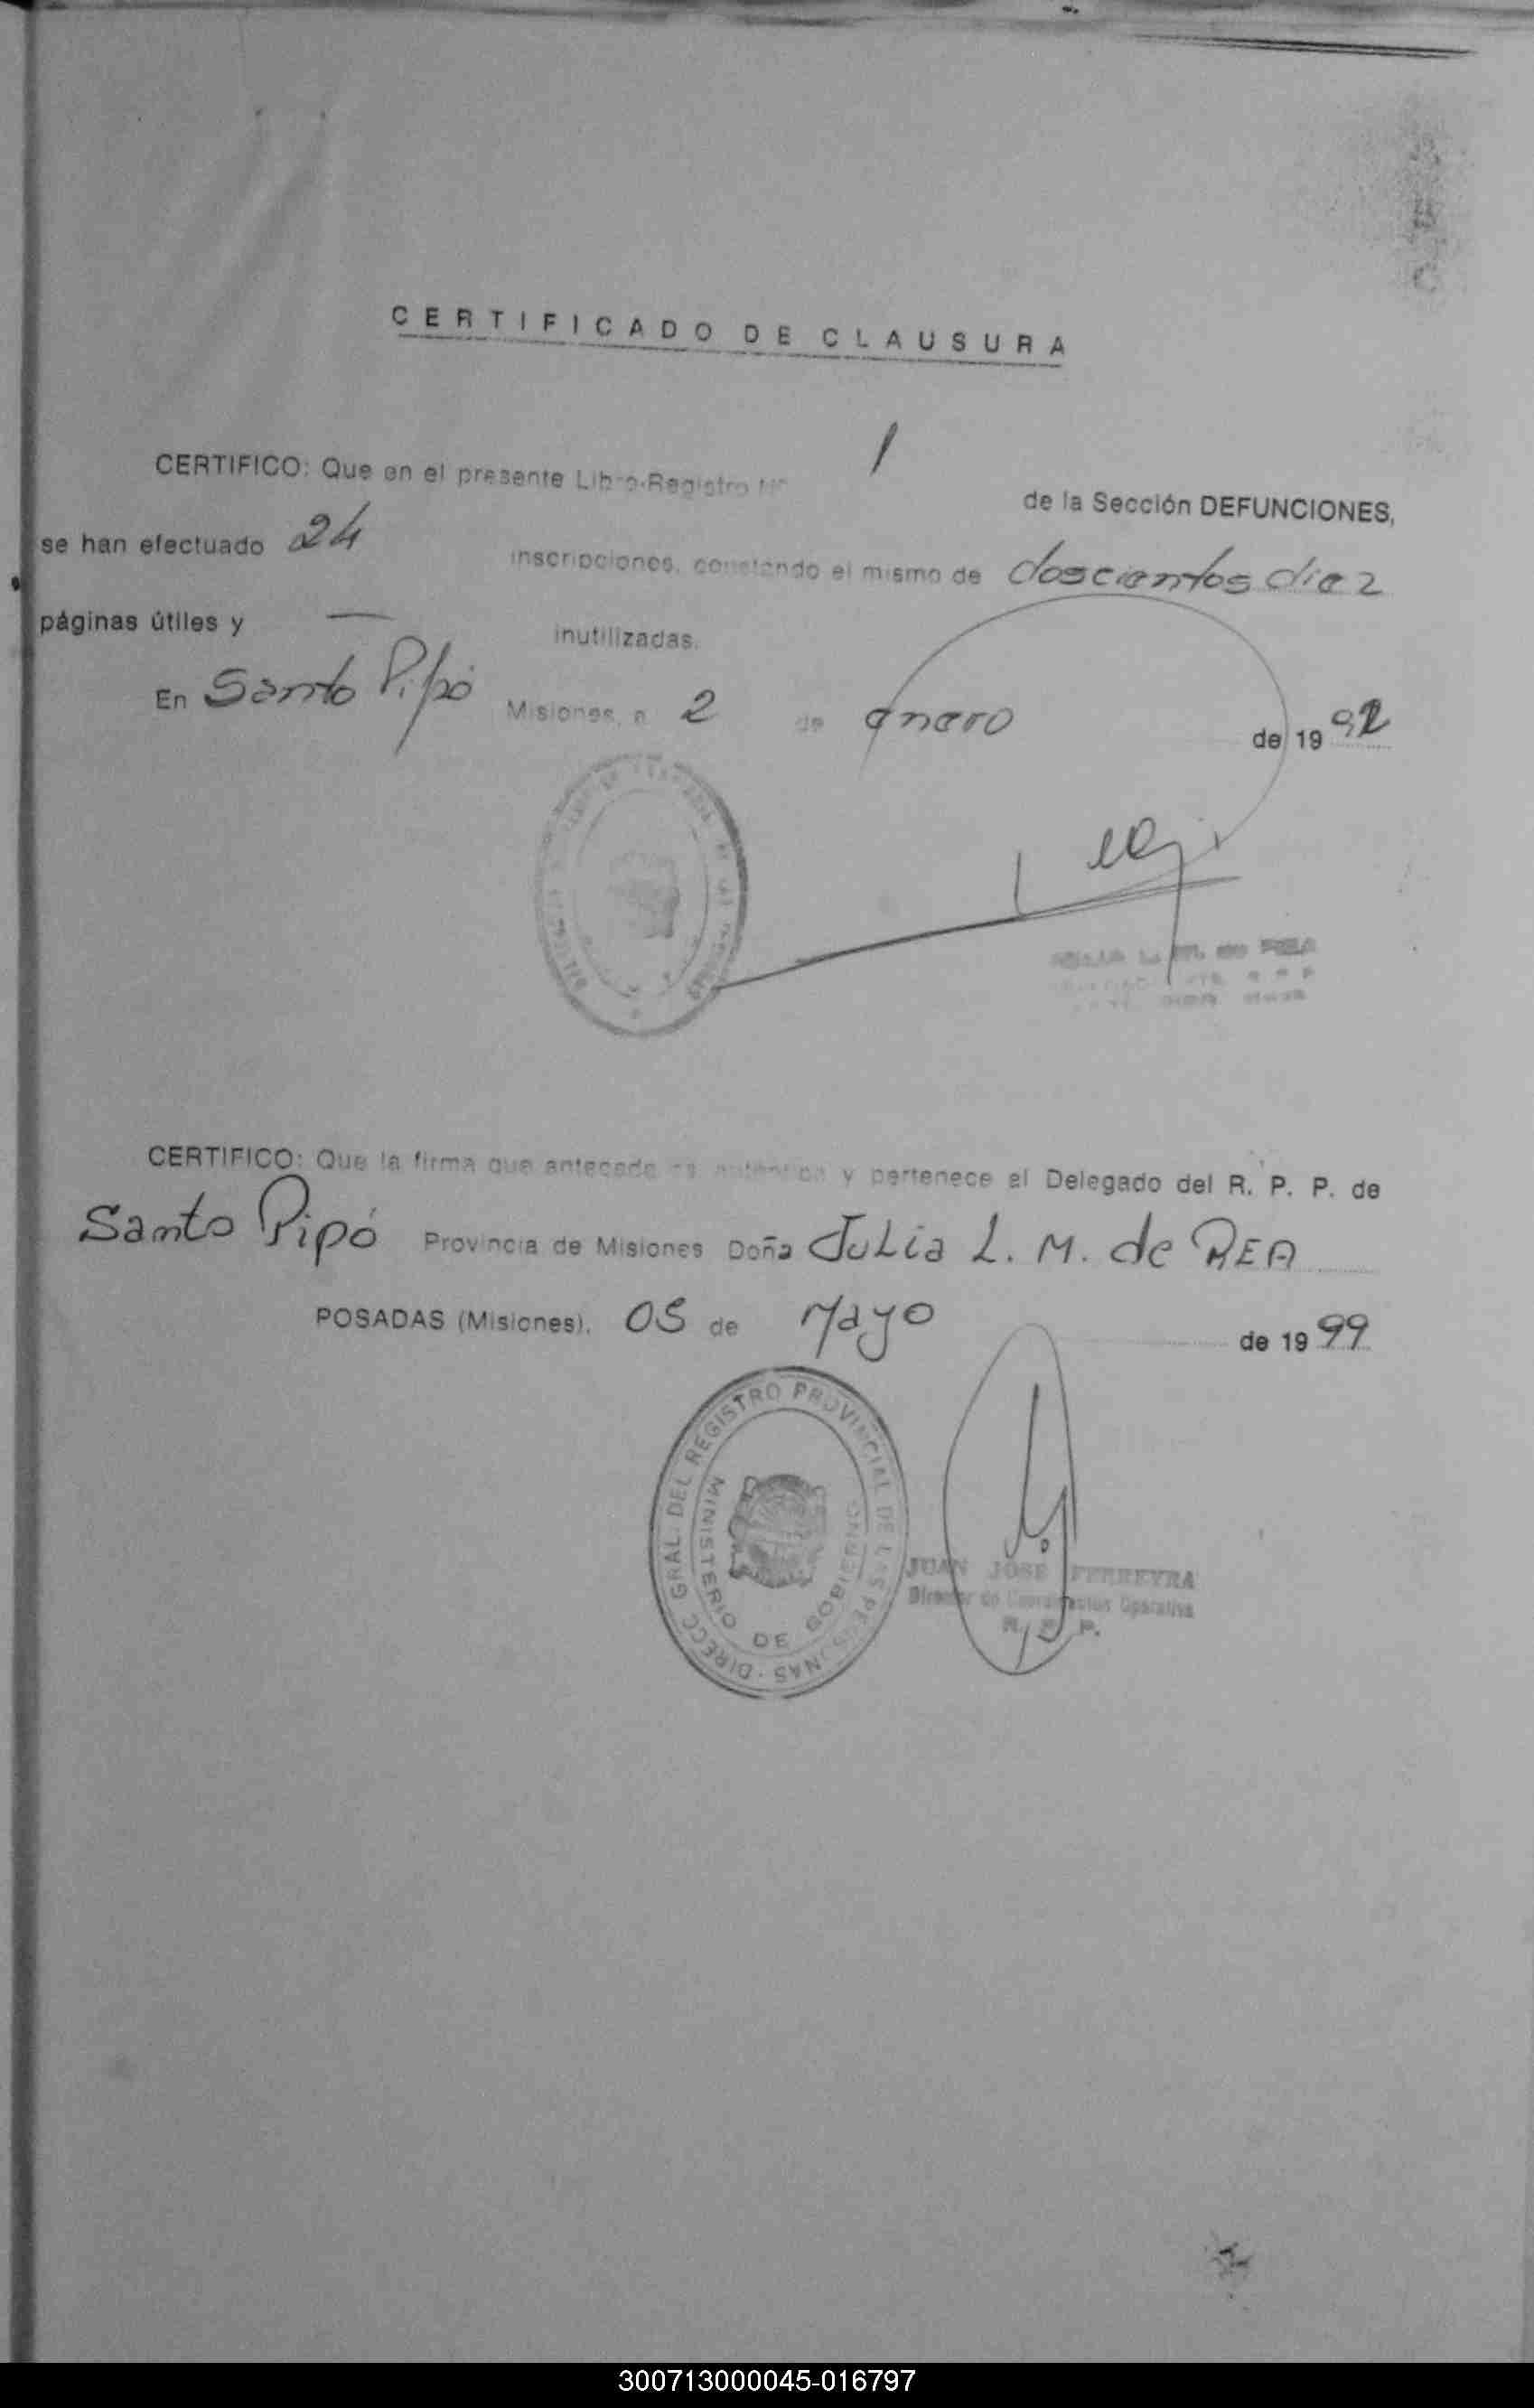 CERTIFICADO DE CLAUSURA
CERTIFICO: Que en el presente Libro-Registro Nº 1 de la Sección DEFUNCIONES,
se han efectuado 24 inscripciones, constando el mismo de doscientos diez
páginas útiles y — inutilizadas.
En Santo Pipó Misiones, a 2 de enero de 1992
CERTIFICO: Que la firma que antecede es auténtica y pertenece al Delegado del R. P. P. de
Santo Pipó Provincia de Misiones Doña Julia L. M. de REA
POSADAS (Misiones), 05 de Mayo de 1999
DIRECC. GRAL. DEL REGISTRO PROVINCIAL DE LAS PERSONAS
MINISTERIO DE GOBIERNO
JUAN JOSE FERREYRA
Director de Coordinacion Operativa
R. P. P.
300713000045-016797